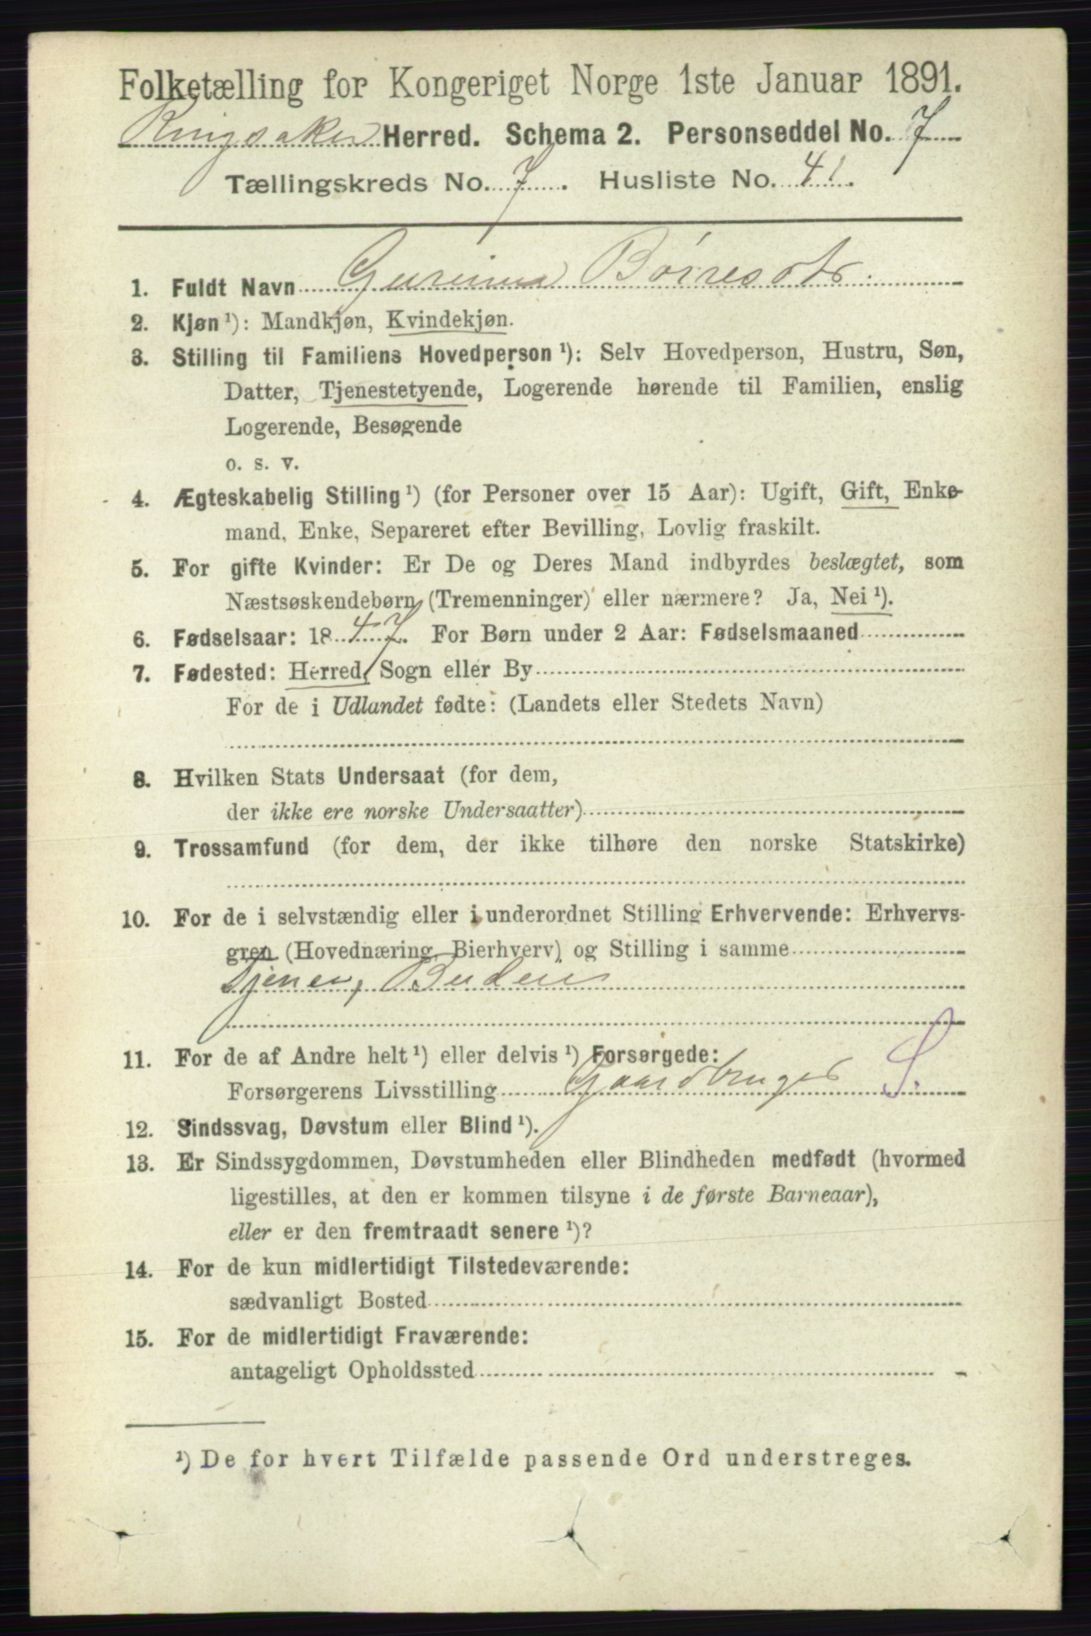 Folketælling for Kongeriget Norge 1ste Januar 1891.
Ringsaker Herred. Schema 2. Personseddel No. 7
Tællingskreds No. 7. Husliste No. 41.
1. Fuldt Navn Børesdtr.
2. Kjøn ¹): Mandkjøn, Kvindekjøn.
3. Stilling til Familiens Hovedperson ¹): Selv Hovedperson, Hustru, Søn,
Datter, Tjenestetyende, Logerende hørende til Familien, enslig
Logerende, Besøgende
o. s. v.
4. Ægteskabelig Stilling ¹) (for Personer over 15 Aar): Ugift, Gift, Enke-
mand, Enke, Separeret efter Bevilling, Lovlig fraskilt.
5. For gifte Kvinder: Er De og Deres Mand indbyrdes beslægtet, som
Næstsøskendebørn (Tremenninger) eller nærmere? Ja, Nei ¹).
6. Fødselsaar: 1847. For Børn under 2 Aar: Fødselsmaaned
7. Fødested: Herred, Sogn eller By
For de i Udlandet fødte: (Landets eller Stedets Navn)
8. Hvilken Stats Undersaat (for dem,
der ikke ere norske Undersaatter)
9. Trossamfund (for dem, der ikke tilhøre den norske Statskirke)
10. For de i selvstændig eller i underordnet Stilling Erhvervende: Erhvervs-
gren (Hovednæring, Bierhverv) og Stilling i samme
Tjener, Budeie
11. For de af Andre helt ¹) eller delvis ¹) Forsørgede:
Forsørgerens Livsstilling Gaardbruger S.
12. Sindssvag, Døvstum eller Blind ¹).
13. Er Sindssygdommen, Døvstumheden eller Blindheden medfødt (hvormed
ligestilles, at den er kommen tilsyne i de første Barneaar),
eller er den fremtraadt senere ¹)?
14. For de kun midlertidigt Tilstedeværende:
sædvanligt Bosted
15. For de midlertidigt Fraværende:
antageligt Opholdssted
¹) De for hvert Tilfælde passende Ord understreges.